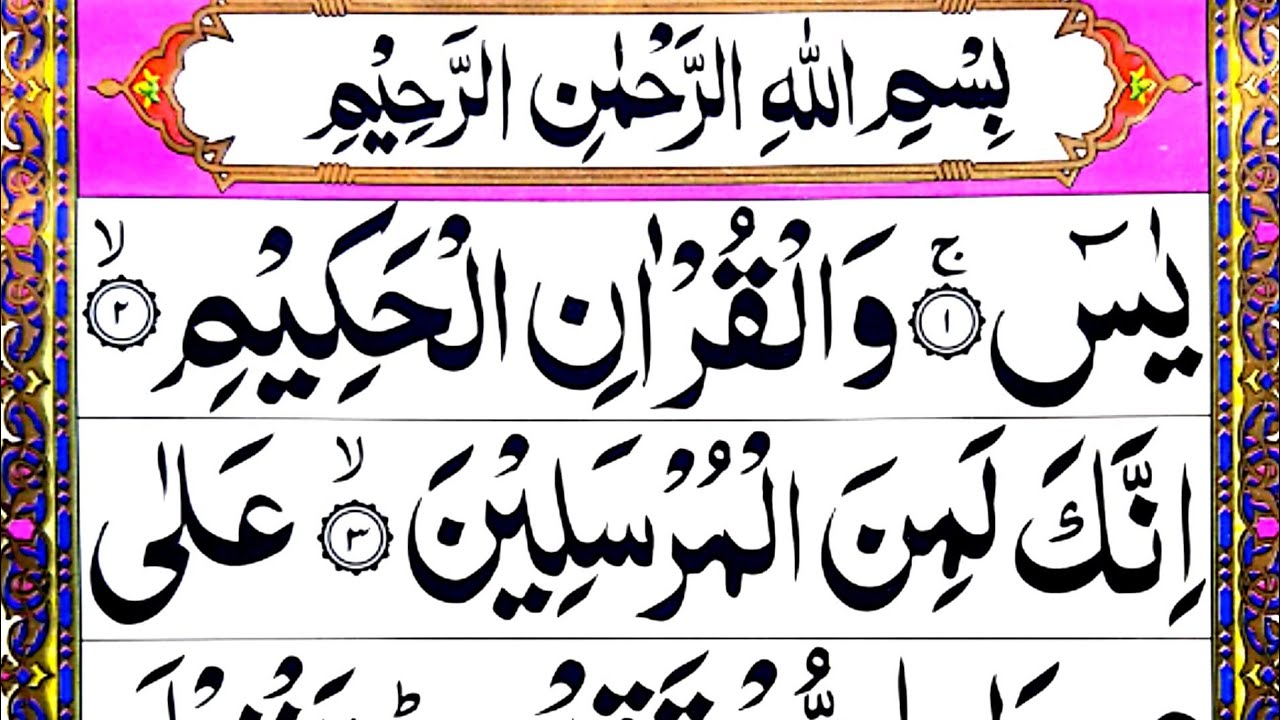 بِسْمِ اللّٰهِ الرَّحْمٰنِ الرَّحِيْمِ
يٰسٓ ۚ ﴿١﴾ وَالْقُرْاٰنِ الْحَكِيْمِ ۙ ﴿٢﴾
اِنَّكَ لَمِنَ الْمُرْسَلِيْنَ ۙ ﴿٣﴾ عَلٰى